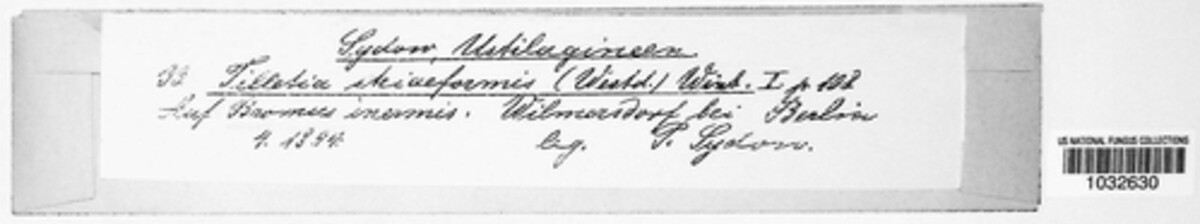 Sydow, Ustilagineen
33 Tilletia striaeformis (Westd.) Wint. I p 108
Auf Bromus inermis. Wilmersdorf bei Berlin
4. 1894. leg. P. Sydow.
US NATIONAL FUNGUS COLLECTIONS
1032630